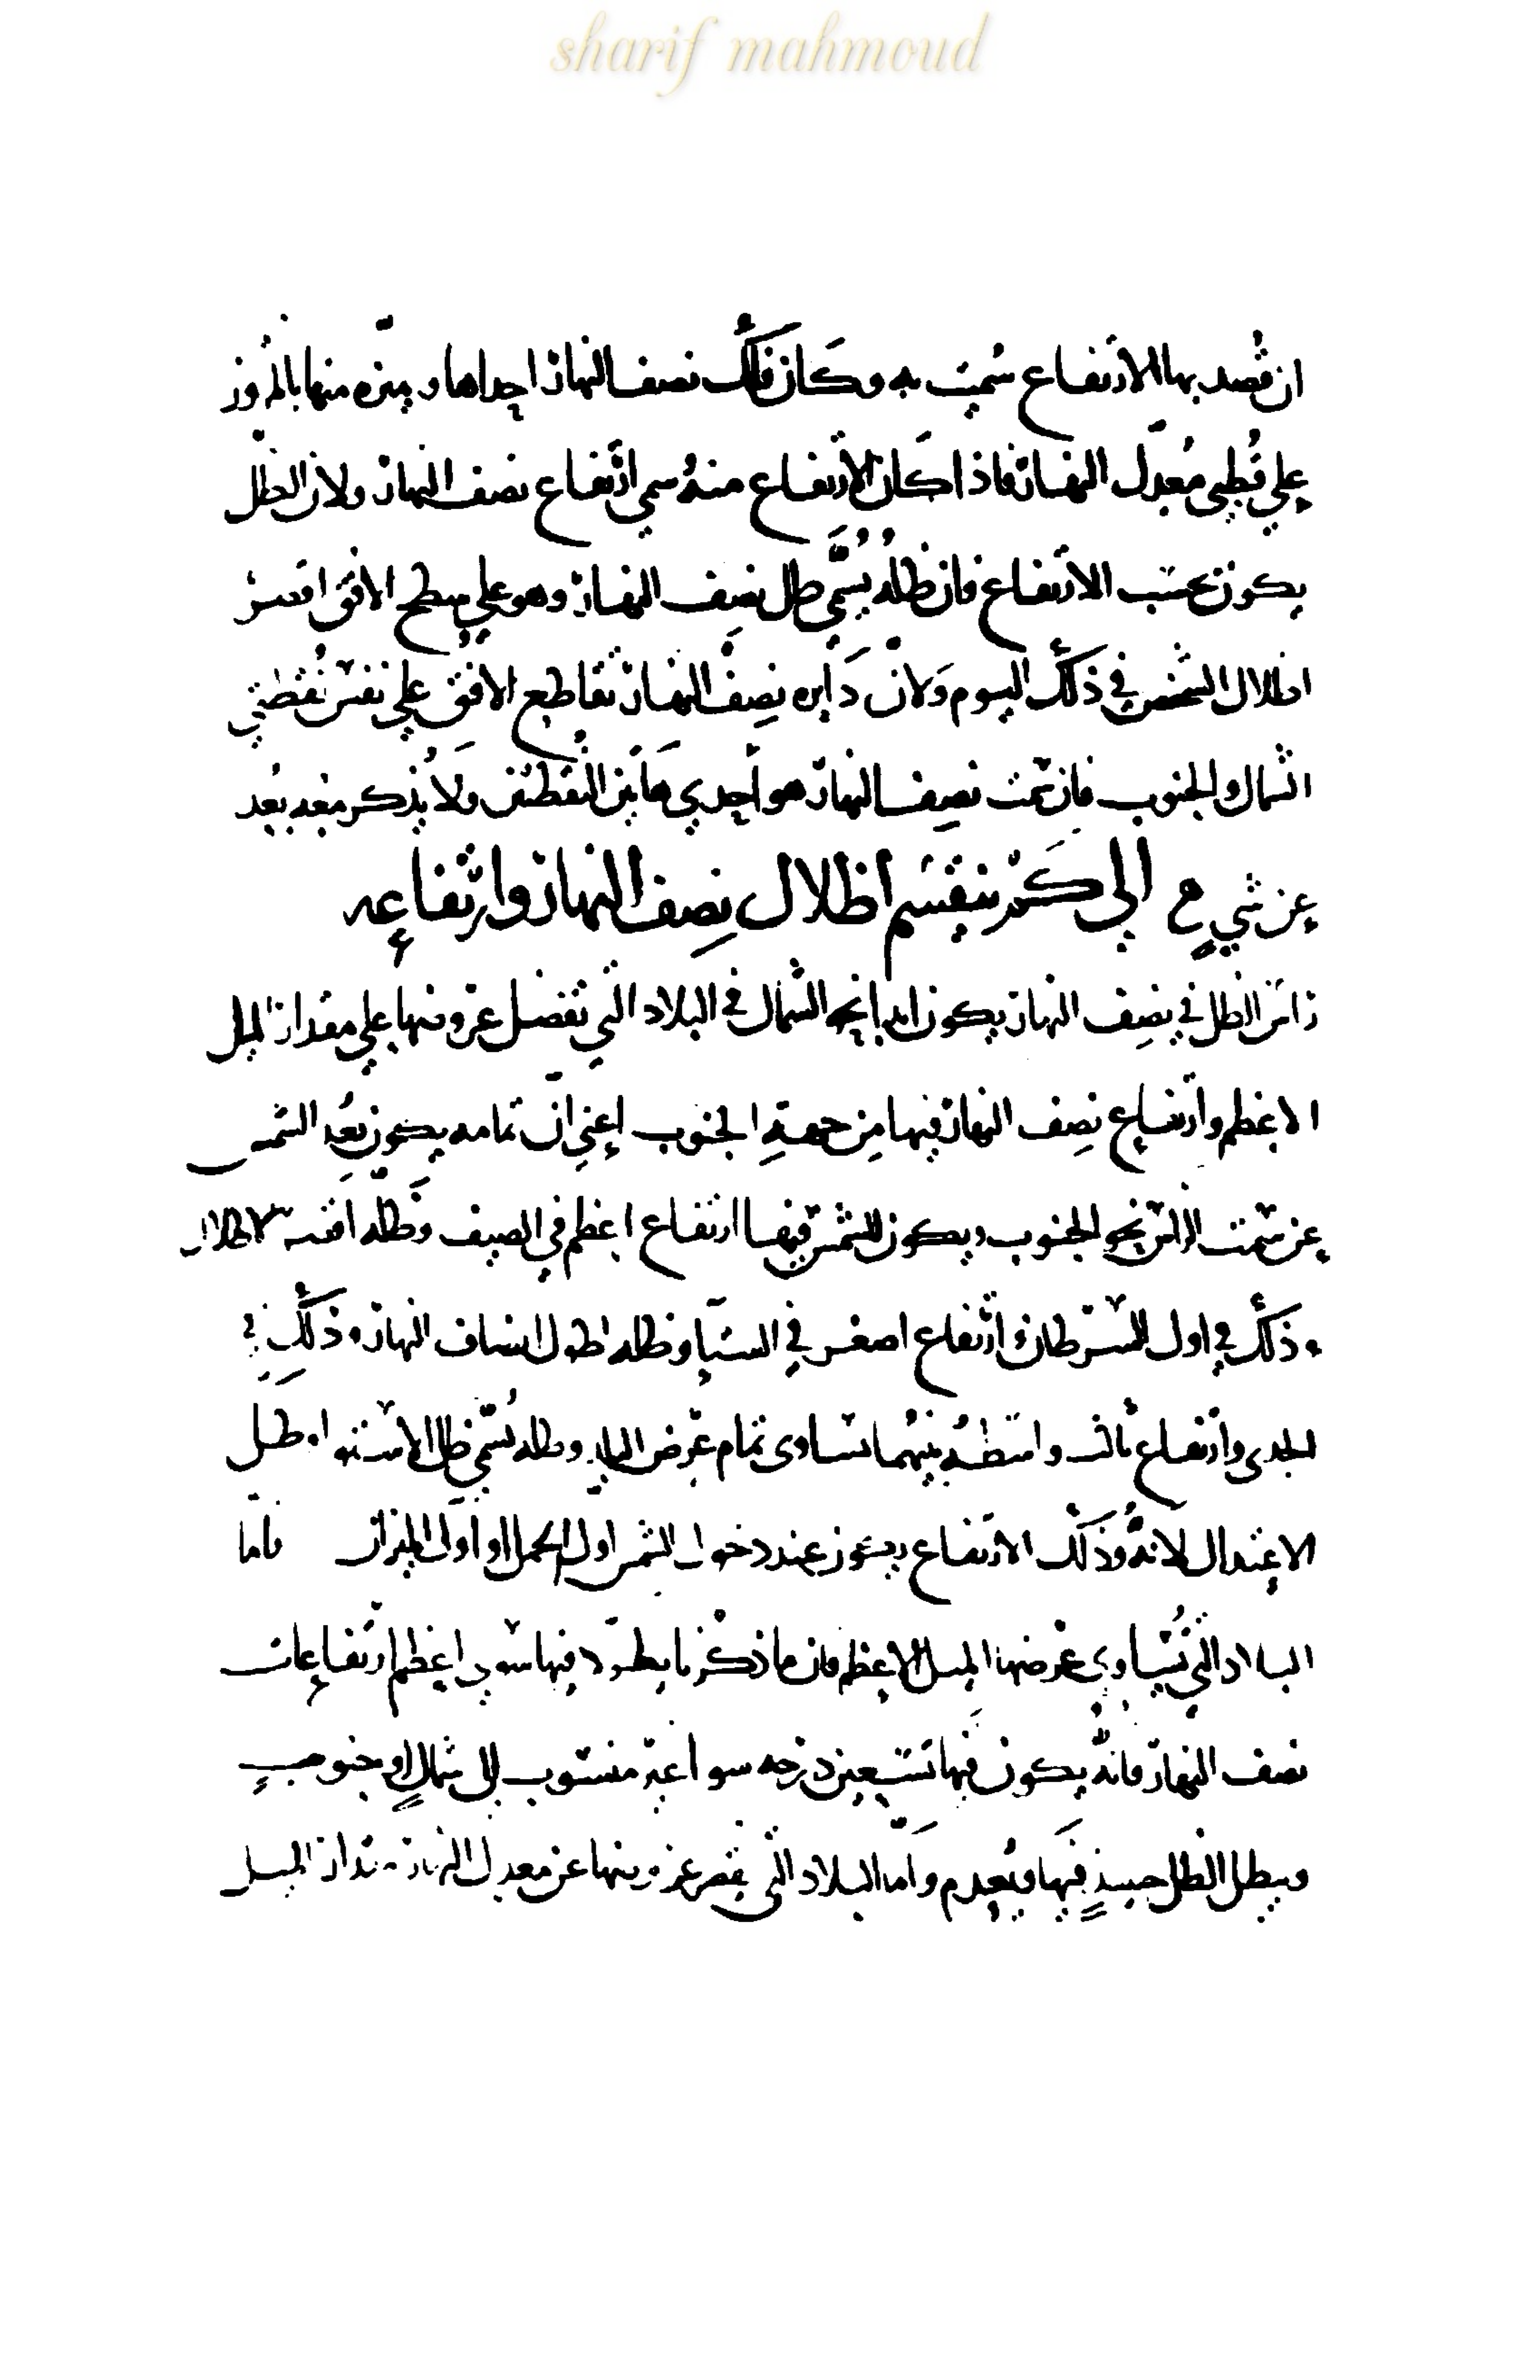 sharif mahmoud
ان قصد بها الارتفاع سُميت به وكان فلك نصف النهار احداها ويميزه منها بالمرور
علي قُطبي مُعدّل النهار فاذا كان الارتفاع منه سمي ارتفاع نصف النهار ولان الظل
يكون بحسب الارتفاع فان ظله يُسمّي ظل نصف النهار وهو علي سطح الافق اقصر
اظلال الشخص في ذلك اليوم ولانّ دايره نصف النهار تقاطع الافق علي نفس نُقطتي
الشمال والجنوب فان سمت نصف النهار هو احدي هاتين النقطتين ولا يُذكر معه بُعد
عن شيٍ الي كم ينقسم اظلال نصف النهار وارتفاعه
راس الظل في نصف النهار يكون ابدا نحو الشمال في البلاد التي تفضل عروضها علي مقدار الميل
الاعظم وارتفاع نصف النهار فيها من جهةِ الجنوب اعني انّ تمامه يكون بُعد الشمس
عن سمت الراس نحو الجنوب ويكون للشمس فيها ارتفاع اعظم في الصيف وظله اقصر الاظلال
وذلك في اول السرطان وارتفاع اصغر في الشتا وظله اطول انصاف النهار وذلك في
الجدي وارتفاع ثالث واسطة بينهما تساوي تمام عرض البلد وظله يُسمّي ظل الاستوا وظل
الاعتدال لانّه وذلك الارتفاع يكون عند دخول الشمس اول الحمل او اول الميزان فاما
البلاد التي يُساوي عرضها الميل الاعظم فان ما ذكرنا يطرد فيها سوي اعظم ارتفاعات
نصف النهار فانه يكون فيها تسعين درجه سوا غير منسوب الي شمالٍ او جنوبٍ
ويبطل الظل حينئذٍ فيها ويُعدم وامّا البلاد التي يقصر عروضها عن معدل النهار مقدار الميل